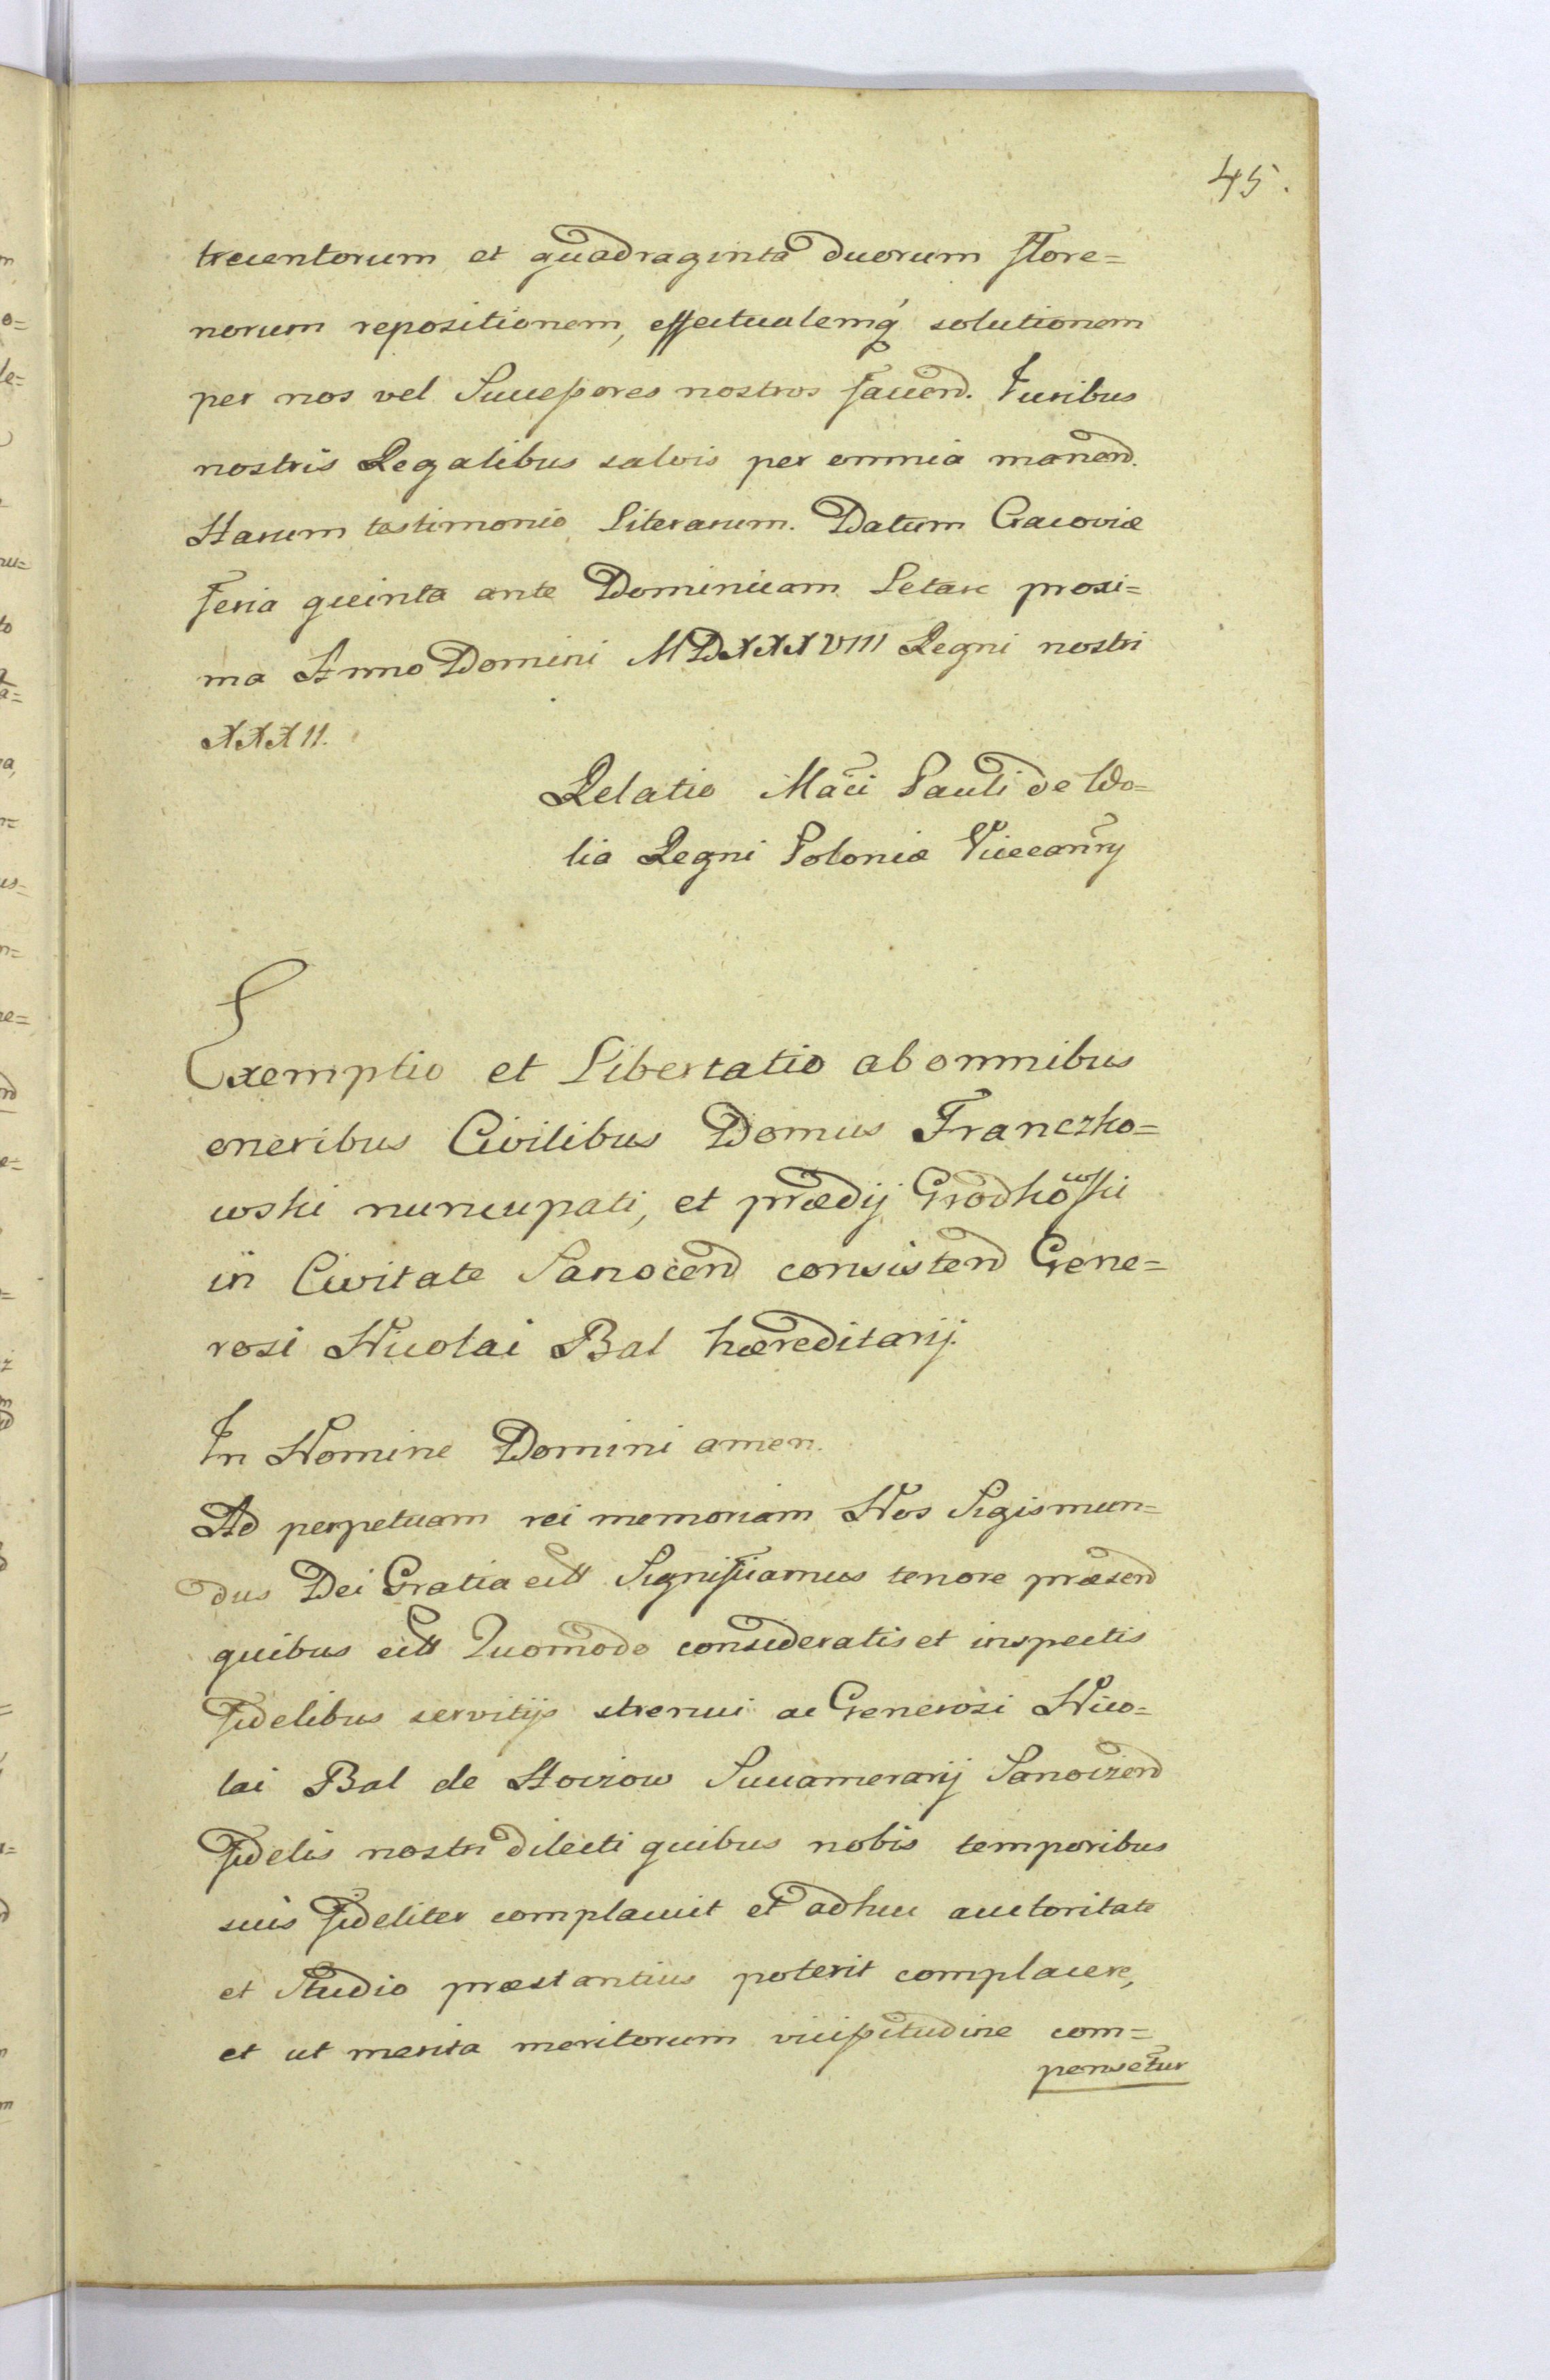 45.
trecentorum et quadraginta duorum flore=
norum repositionem, effectualemq́ solutionem
per nos vel Successores nostros faciend. Iuribus
nostris Regalibus salvis per omnia manend.
Harum testimonio Literarum. Datum Cracoviæ
feria quinta ante Dominicam Letare proxi=
ma Anno Domini MDXXXVIII Regni nostri
XXXII.
Relatio Maci Pauli de Wo=
lia Regni Poloniæ Vicecanry
Exemptio et Libertatio ab omnibus
oneribus Civilibus Domus Franczko=
wski nuncupati, et prædij Grodkowski
in Civitate Sanocen consisten Gene=
rosi Nicolai Bal hæreditarij.
In Nomine Domini amen.
Ad perpetuam rei memoriam Nos Sigismun=
dus Dei Gratia ett Significamus tenore præsen
quibus ett Quomodo consideratis et inspectis
fidelibus servitijs strenui ac Generosi Nico=
lai Bal de Hoczow Succamerarij Sanoczen
fidelis nostri dilecti quibus nobis temporibus
suis fideliter complacuit et adhuc auctoritate
et Studio præstantius poterit complacere,
et ut merita meritorum vicissitudine com=
pensetur